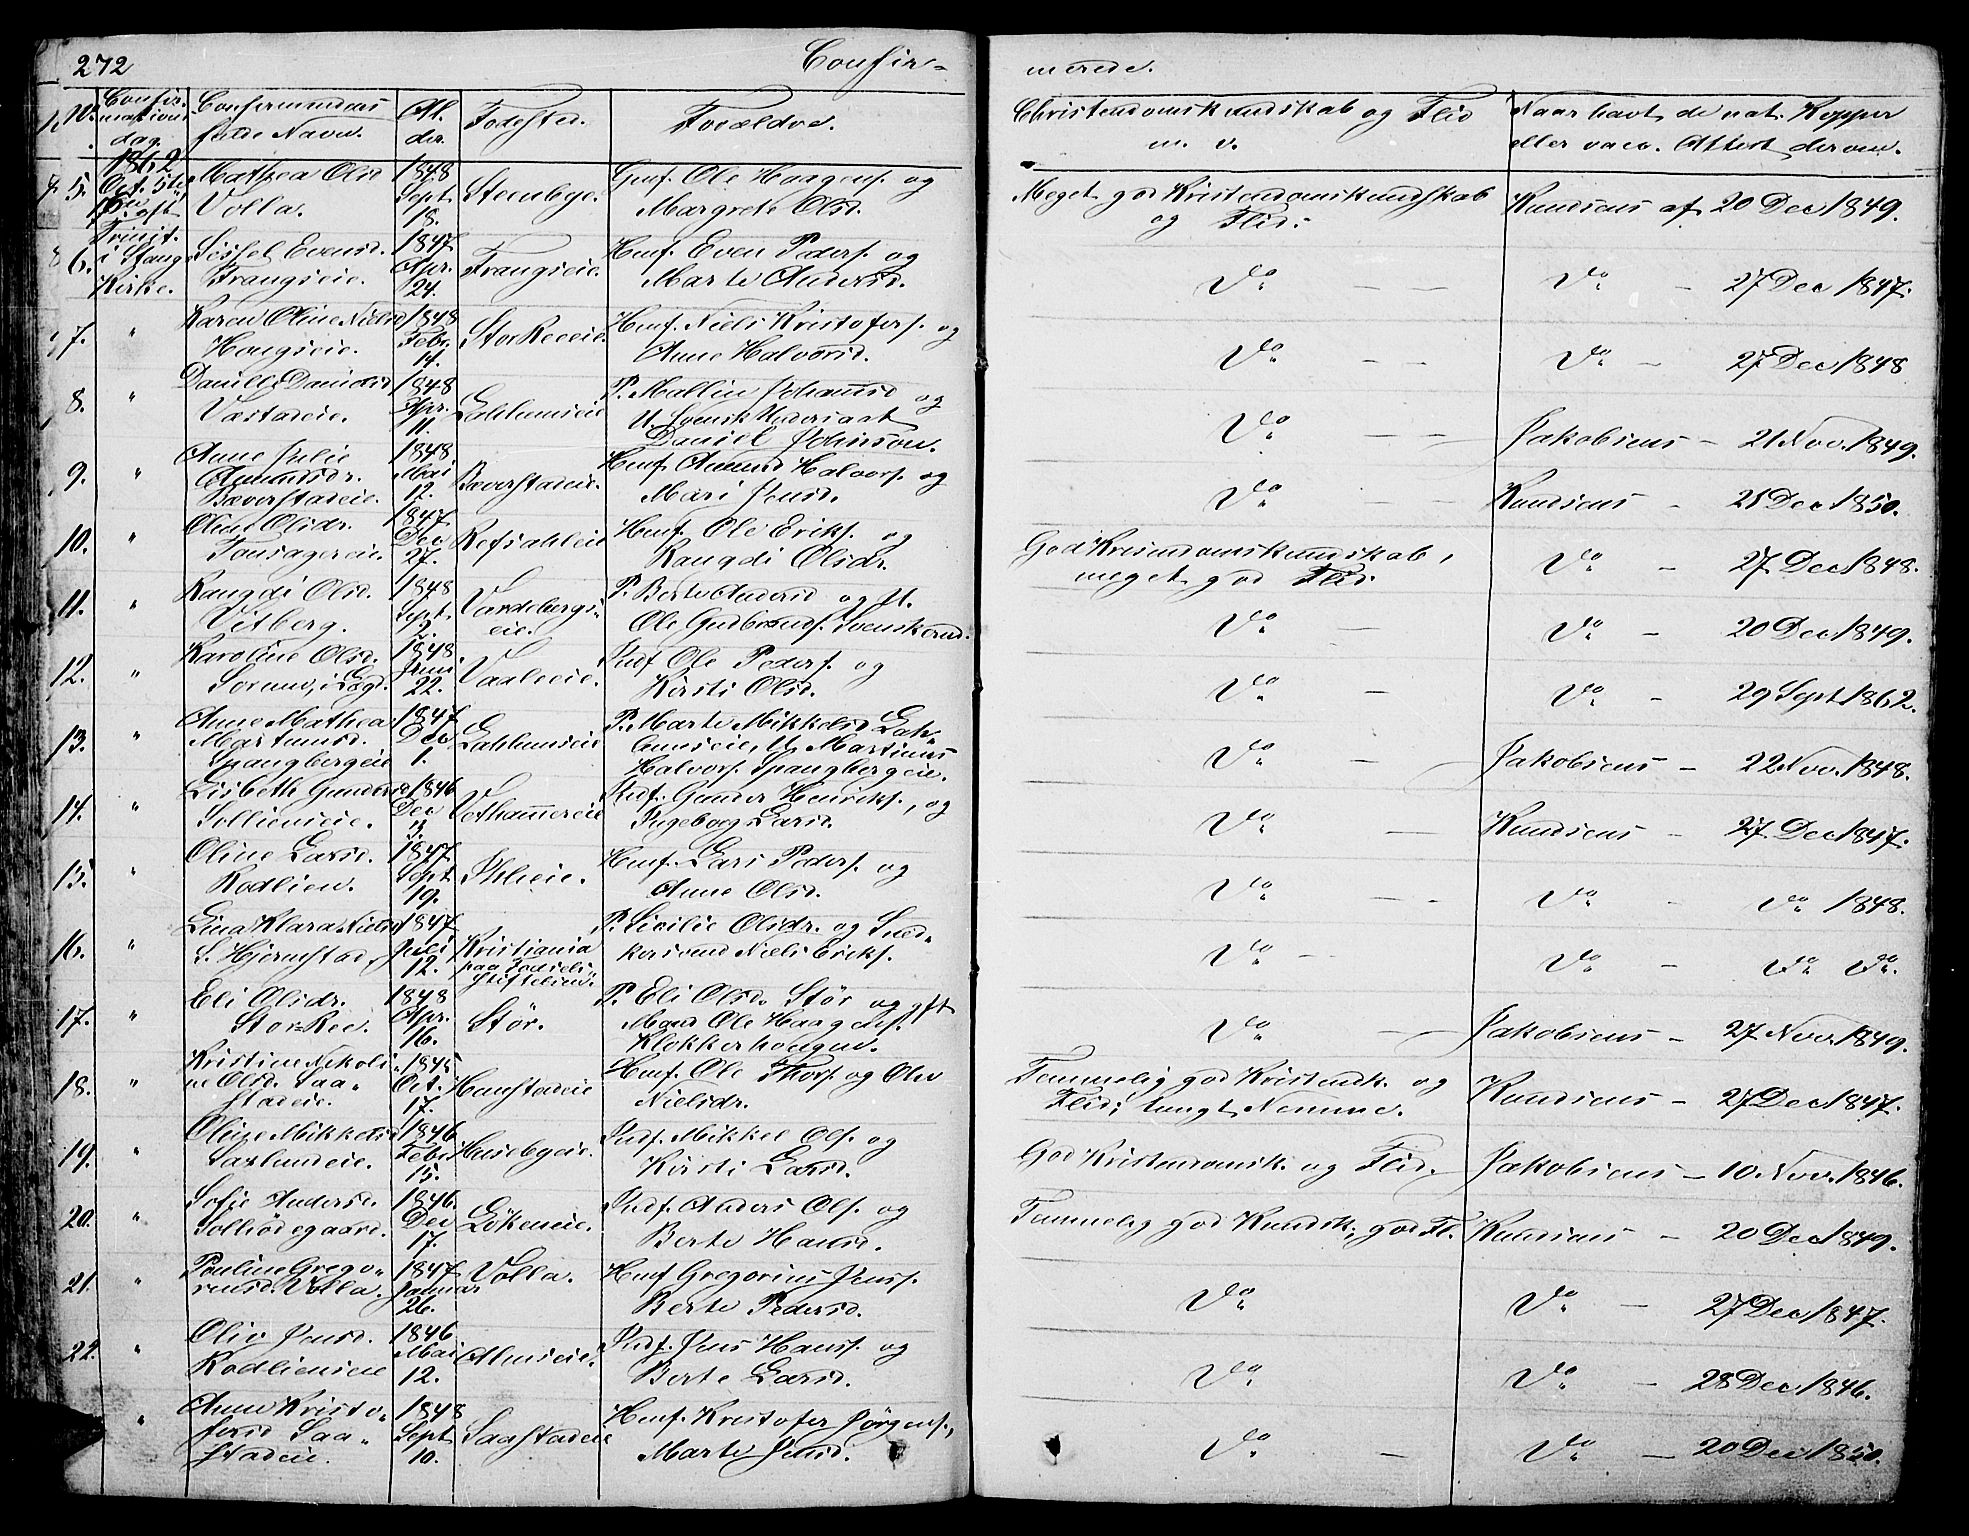 272 Confir- merede.
No. Confirmations dag. Confirmandens fulde Navn. Alder. Fødested. Forældre. Christendomskundskab og Flid m. v. Naar havt de nat. Kopper eller vacc. Attest derom.
5. 1862 Oct. 5te eft. Trinit. i Stange Kirke.
Mathea Olsd Volla. 1848 Sept 18. Steenbye. Gmf. Ole Haagens. og Margrete Olsd. Meget god Kristendomskundskab og Flid. Knudsens af 20 Dec 1849.
6. Sissel Evensd. Frangseie. 1847 Apr. 24. Frangseie. Hmf. Even Peders. og Marte Andersd. Do Do - 27 Dec 1847.
7. " Karen Oline Nielsd Hougseie. 1848 Febr. 14. StorReeeie. Hmf. Niels Kristofers. og Anne Halvorsd. Do Do - 27 Dec 1848
8. " Danielsd Vestadeie. 1848 Apr. 11. Lahlumseie P. Mallin Johansd og U. Svensk Undersaat Daniel Johnson. Do Jakobsens - 21 Nov. 1849.
9. " Anne Julie Amundsdr. Bæverstadeie. 1848. Mai 12. Bæverstadeie. Hmf. Amund Halvors. og Mari Jensd. Do Knudsens - 21 Dec 1850.
10. " Oline Olsdr. 1847 Dec 27. Refsahleie Hmf. Ole Eriks. og Rangdi Olsdr. God Krisendomskundskab, meget god Flid. Do - 27 Dec 1848.
11. " Rangdi Olsd. Vitberg. 1848 Sept. 2. Vardebergseie. P. Berte Andersd og U. Ole Gudbrands. Svenskerud. Do Do - 20 Dec 1849.
12. " Karoline Olsd. 1848 Juni 22. Vaaleeie. Indf Ole Peders. og Kirsti Olsd. Do Do - 29 Sept 1862.
13. " Anne Mathea Martinsd. Spangbergeie 1847 Dec 1. Lahlumseie P. Marte Mikkelsd Lahlumseie, U. Martinus Halvors. Spangbergeie. Do Jakobsens - 22 Nov. 1848.
14. " Lisbeth Gundersd Sollienseie. 1846 Dec 3. Vethammereie Indf. Gunder Henriks., og Ingeborg Larsd. Do Knudsens - 27 Dec 1847.
15. " Oline Larsd. Rodlien. 1847 Sept 19. Ihleeie. Hmf. Lars Peders. og Anne Olsd. Do Do - Do 1848.
16. " Lina Klara Nielsd S. Hjermstad, 1847 Juli 12. Kristiania paa Fødselsstiftelsen. P. Sicilie Olsdr. og Snedkersvend Niels Eriks. Do Do - Do Do.
17. " Eli Olsdr. StorRee. 1848 Apr. 16. Stør. P. Eli Olsd. Stør og gft Mand Ole Haagens. Klokkerhougen. Do Jakobsens - 27 Nov. 1849.
18. " Kristine Nikoline Olsd. Saastadeie. 1845 Oct. 17. Houstadeie Hmf. Ole Thors. og Olia Nielsdr. Temmelig god Kristendk. og Flid; tungt Nemme. Knudsens - 27 Dec 1847.
19. " Oline Mikkelsd Saxlundeie. 1846 Febr 15. Husebyeie. Indf. Mikkel Ols. og Kirsti Larsd. God Kristendomsk. og Flid. Jakobsens - 10. Nov. 1846.
20. " Sofie Andersd. Solliødegaard. 1846. Dec 17. Løkeneie. Indf. Anders Ols. og Berte Hansd. Temmelig god Kundsk., god Fl. Knudsens - 20 Dec 1849.
21. " Pauline Gregorensd. Volla. 1847 Januar 26. Volla. Hmf Gregorius Jens. Berte Pedersd. Do Do - 27 Dec 1847.
22. " Oliv Jensd. Rodlienseie 1846 Mai 12. Almseie. Indf. Jens Hans. og Berte Larsd. Do Do - 28 Dec 1846.
" Anne Kristofersd Saastadeie. 1848 Sept 10. Saastadeie Hmf. Kristofer Jørgens., Marte Jensd. Do Do - 20 Dec 1850.